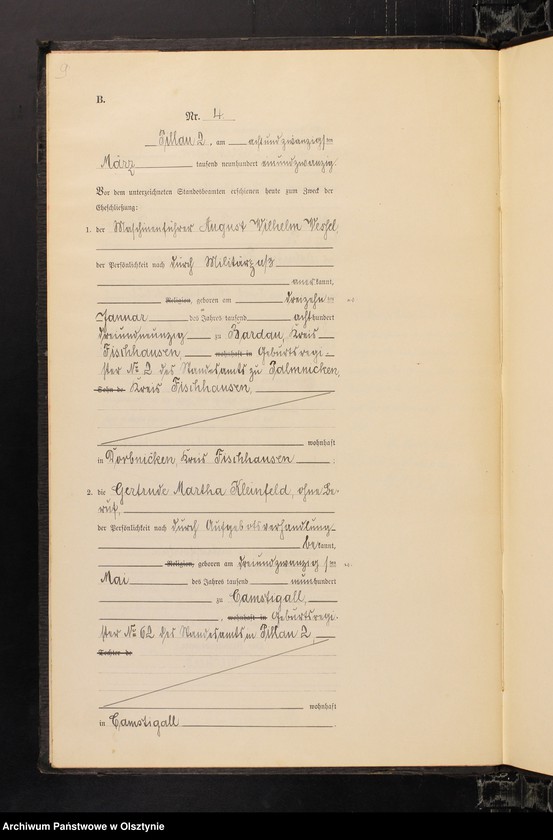 9
B.
Nr. 4
Pillau 2, am achtundzwanzigsten
März tausend neunhundert einundzwanzig.
Vor dem unterzeichneten Standesbeamten erschienen heute zum Zweck der
Eheschließung:
1. der Maschinenführer August Wilhelm
der Persönlichkeit nach durch Militärpaß
anerkannt,
Religion, geboren am dreizehnten
Januar des Jahres tausend achthundert
dreiundneunzig zu Bardau, Kreis
Fischhausen, wohnhaft in Geburtsregi-
ster No 2 des Standesamts zu Palmnicken,
Sohn de Kreis Fischhausen,
wohnhaft
in Dorbnicken, Kreis Fischhausen ;
2. die Gertrude Martha Kleinfeld, ohne Be-
ruf,
der Persönlichkeit nach durch Aufgebotsverhandlung
bekannt,
Religion, geboren am dreiundzwanzigsten
Mai des Jahres tausend neunhundert
zu Camstigall,
, wohnhaft in Geburtsregi-
ster No 62 des Standesamts in Pillau 2,
Tochter de
wohnhaft
in Camstigall .
Archiwum Państwowe w Olsztynie